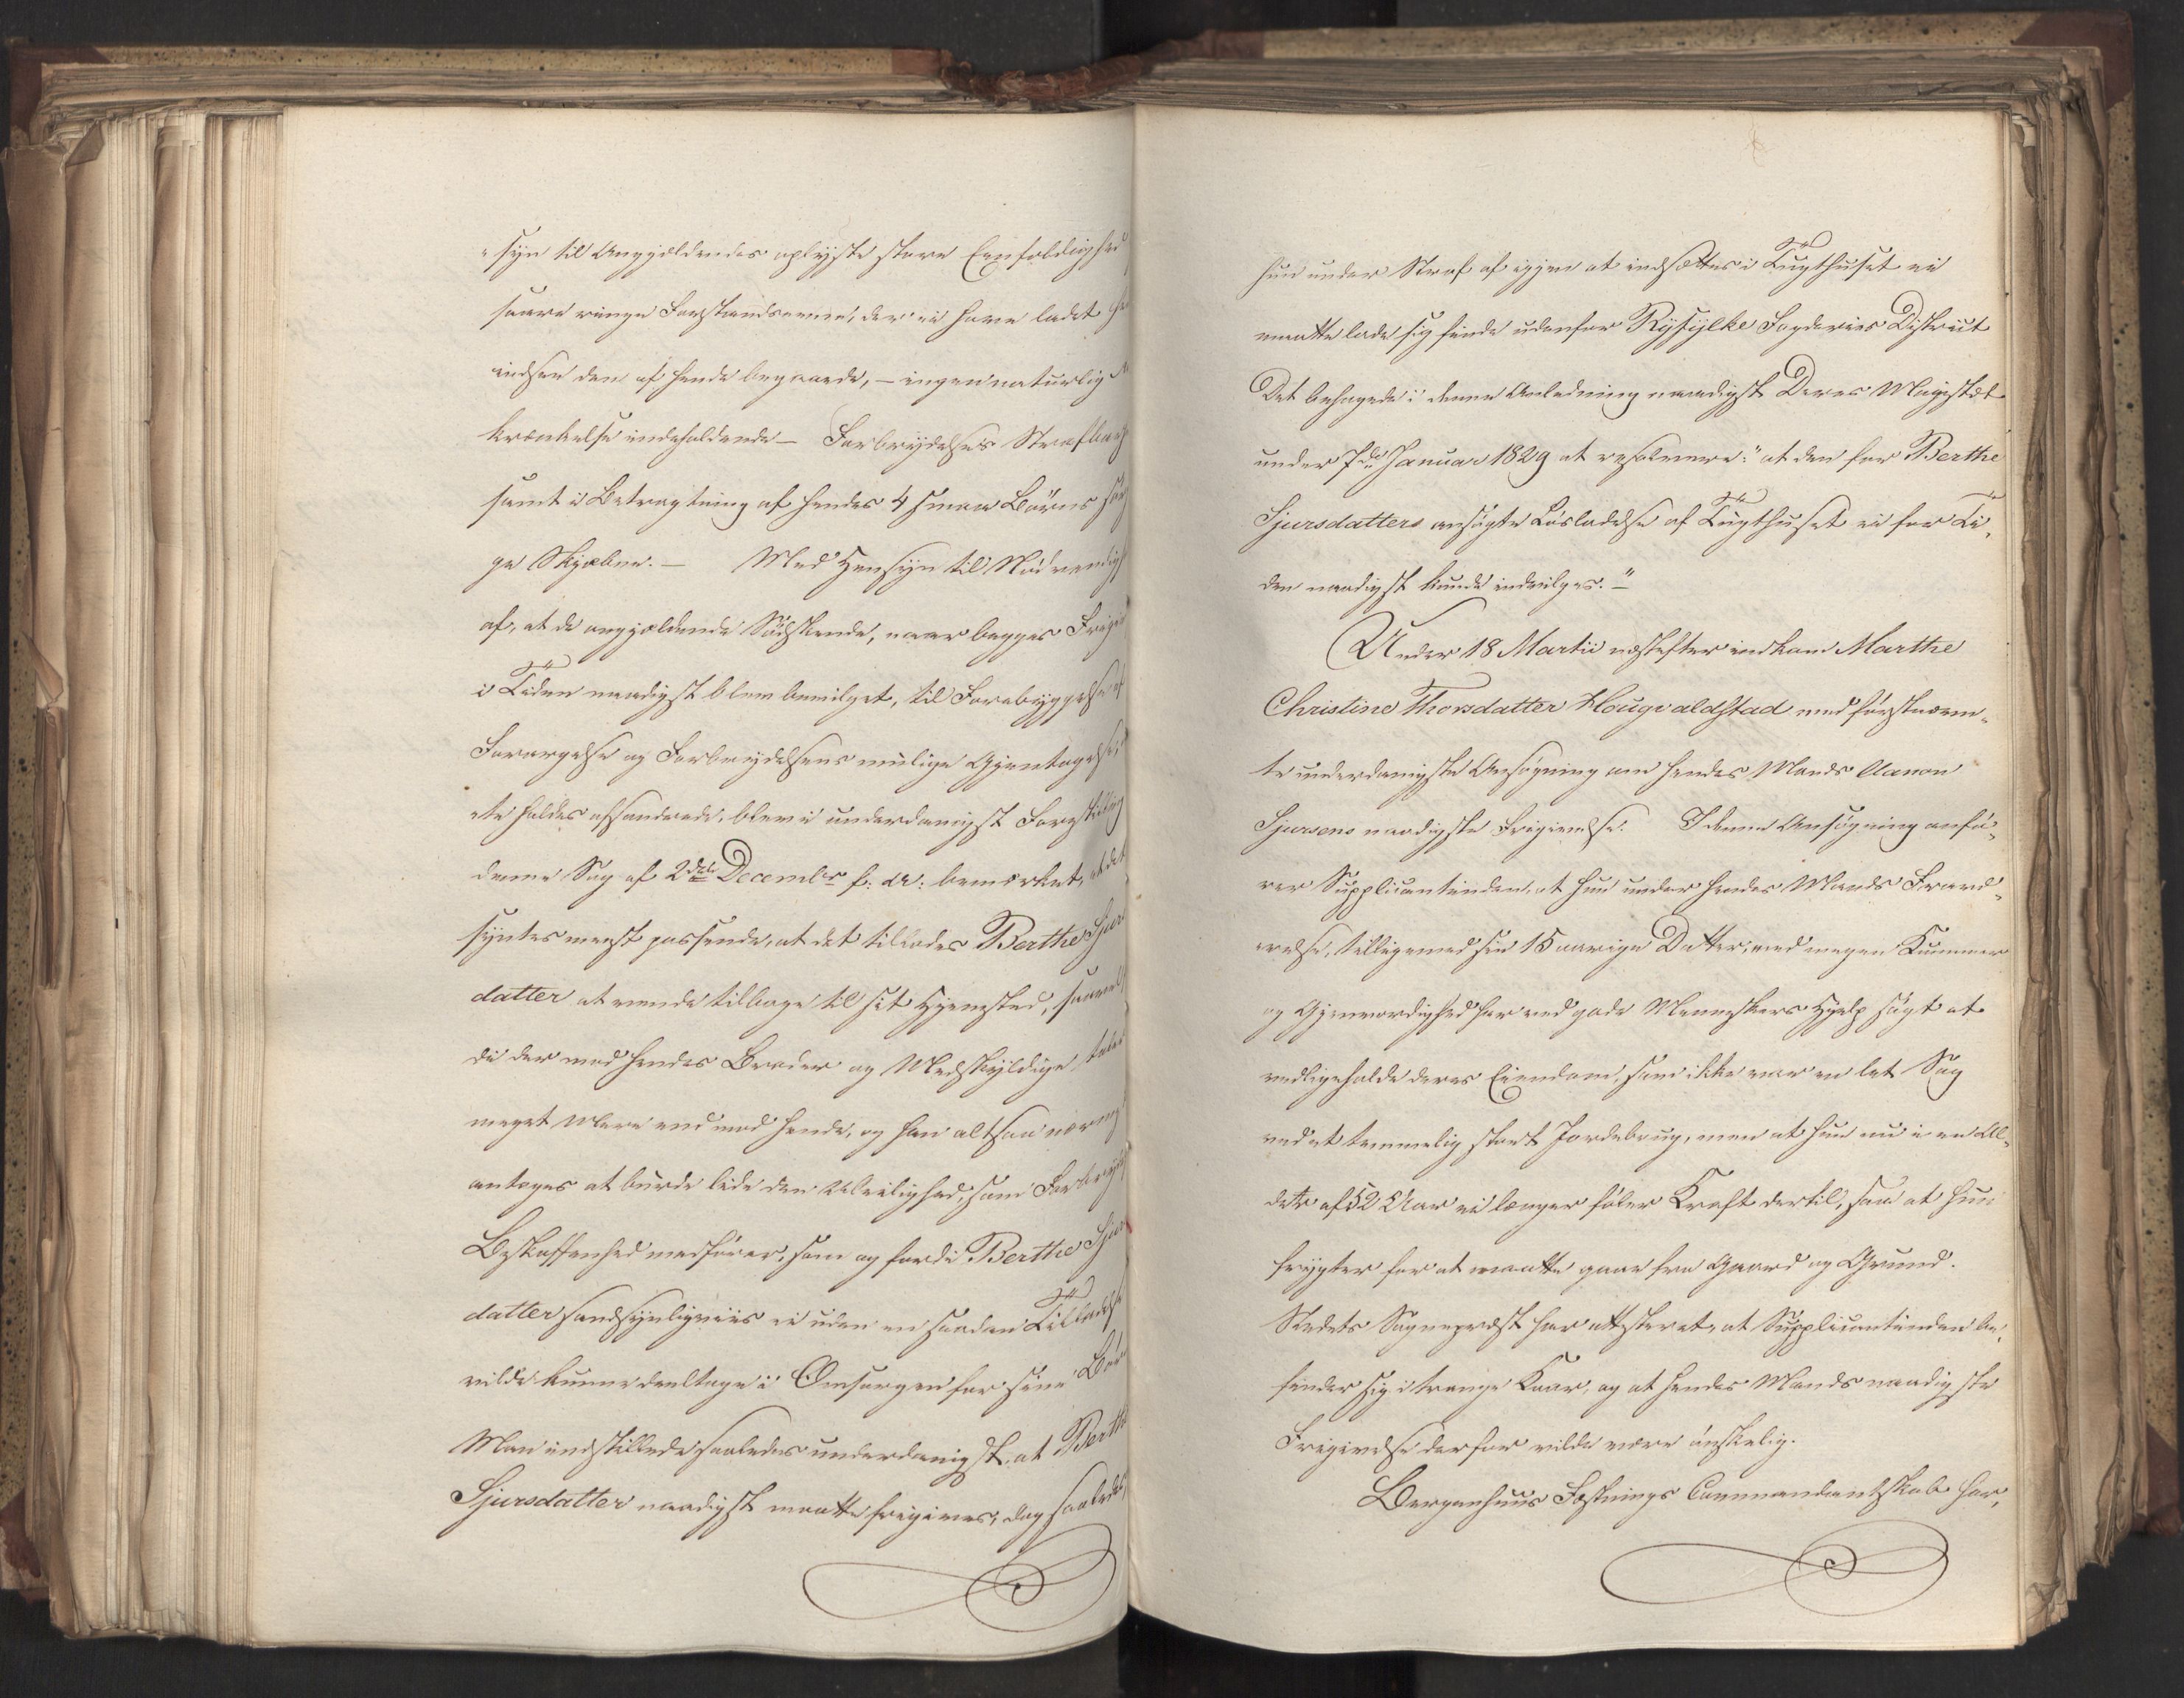 "syn til Angjældendes oplyste store Eenfoldighed
saare ringe Forstandsevner, der ei have ladet
indsee den af hende begaaede, – ingen naturlig
krænkelse indeholdende – Forbrydelses Strafbar
samt i Betragtning af hendes 4 smaae Børns sør
ge Skjæbne. – Med Hensyn til Nødvendigh
af, at de angjældende Sødskende, naar begges Frigi
i Tiden naadigst blev bevilget, til Forebyggelse af
Forargelse og Forbrydelsens mulige Gjentagelse,
ete holdes afsondrede, blev i underdanigst Forestilling
denne Sag af 2den December f: A: bemærket, at det
syntes meest passende, at det tillodes Berthe Sjurs
datter at vende tilbage til sit Hjemsted, saavel
di der mod hendes Broder og Medskyldige taler
meget Mere end mod hende, og han altsaa nærmest
antages at burde lide den Uleilighed, som Forbryd
Beskaffenhed medfører, som og fordi Berthe Sjurs
datter sandsynligviis ei uden en saadan Tilladelse
vilde kunne deeltage i Omsorgen for sine Børn
Man indstillede saaledes underdanigst, at Berthe
Sjursdatter naadigst maatte frigives, dog saaledes,
hun under Straf af igjen at indsættes i Tugthuset ei
maatte lade sig finde udenfor Ryfylke Fogderies District
Det behagede i denne Anledning naadigst Deres Majestæt
under 7de Januar 1829 at resolvere: "at den for Berthe
Sjursdatters ansøgte Løsladelse af Tugthuset ei for Ti-
den naadigst kunde indvilges." –
Under 18 Martii næstefter indkom Marthe
Christine Thorsdatter Hougvaldstad med førstnævn-
te underdanigste Ansøgning om hendes Mands Aanon
Sjursens naadigste Frigivelse. I denne Ansøgning anfø-
rer Supplicantinden, at hun under hendes Mands Fravæ-
relse, tilligemed sin 15 aarige Datter, med megen Kummer
og Gjenvordighed har ved gode Menneskers Hjelp søgt at
vedligeholde deres Eiendom, som ikke var en let Sag
ved et temmelig stort Jordebrug, men at hun nu i en Al-
der af 52 Aar ei længer føler Kraft dertil, saa at hun
frygter for at maatte gaae fra Gaard og Grund.
Stedets Sognepræst har attesteret, at Supplicantinden be-
finder sig i trange Kaar, og at hendes Mands naadigste
Frigivelse derfor vilde være ønskelig.
Bergenhuus Fæstnings Commandantskab har,